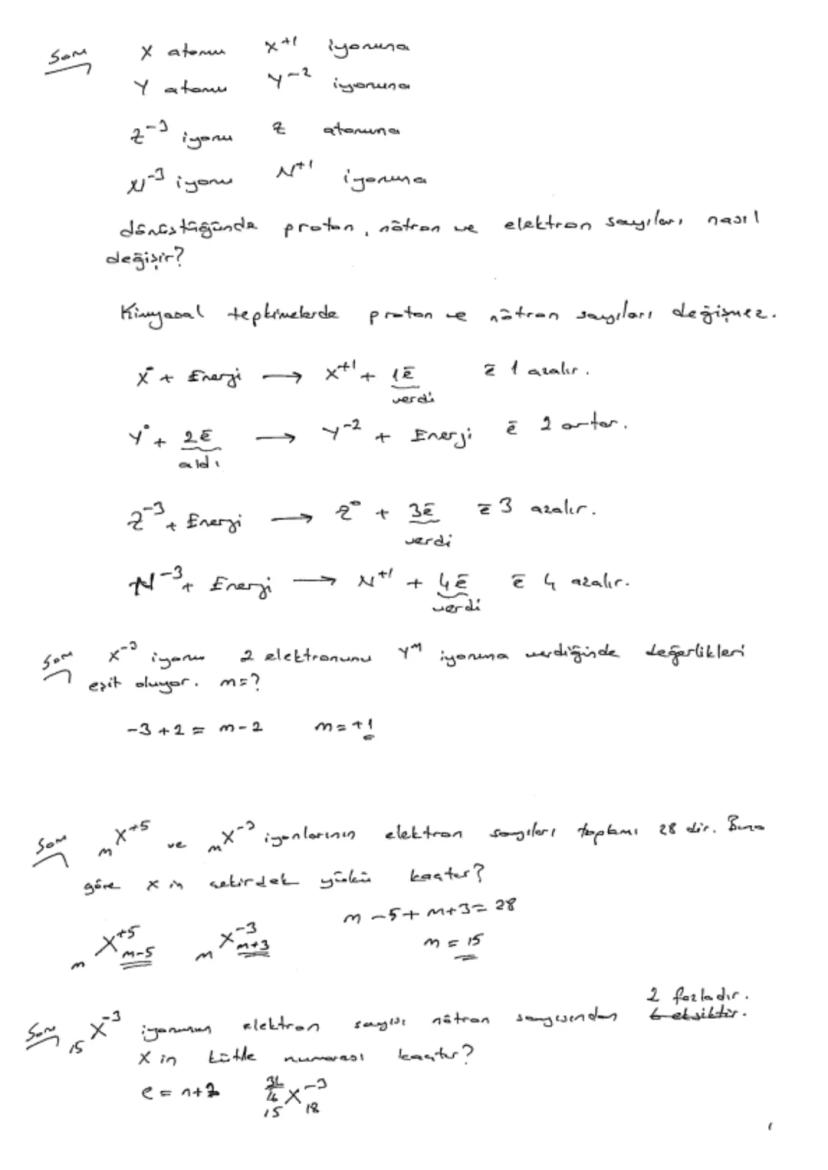 Soru X atomu X+1 iyonuna
Y atomu Y-2 iyonuna
Z-3 iyonu Z atomuna
N-3 iyonu N+1 iyonuna
dönüştüğünde proton, nötron ve elektron sayıları nasıl
değişir?
Kimyasal tepkimelerde proton ve nötron sayıları değişmez.
X° + Enerji → X+1 + 1ē ē 1 azalır.
verdi
Y° + 2ē → Y-2 + Enerji ē 2 artar.
aldı
Z-3 + Enerji → Z° + 3ē ē 3 azalır.
verdi
N-3 + Enerji → N+1 + 4ē ē 4 azalır.
verdi
Soru X-3 iyonu 2 elektronunu Ym iyonuna verdiğinde değerlikleri
eşit oluyor. m=?
-3+2 = m-2 m = +1
Soru mX+5 ve mX-3 iyonlarının elektron sayıları toplamı 28 dir. Buna
göre X in çekirdek yükü kaçtır?
m-5+m+3 = 28
mX+5 m-5 mX-3 m+3 m = 15
2 fazladır.
Soru 15X-3 iyonunun elektron sayısı nötron sayısından 6 eksiktir.
X in kütle numarası kaçtır?
e = n+2 X-3
15 18